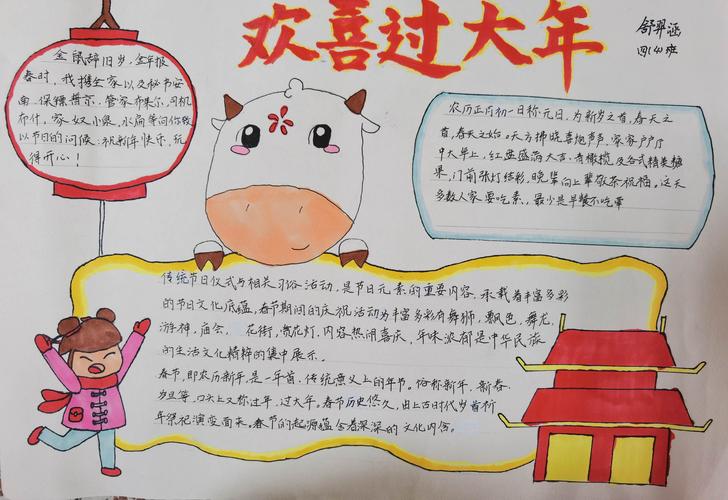 欢喜过大年
舒羿涵
四(4)班
金鼠辞旧岁,金牛报
春时,我携全家以及秘书安
南、保镖普京、管家布莱尔、司机
布什、家奴小泉、水扁等向你致
以节日的问候:祝新年快乐,玩
得开心!
农历正月初一日称元日,为新岁之首,春天之
首,春天之始。天方拂晓喜炮声声,家家户户厅
中大桌上,红盘盛满大吉、青橄榄及各式精美糖
果,门前张灯结彩,晚辈向上辈敬茶祝福。这天
多数人家要吃素,最少是早餐不吃荤
传统节日仪式与相关习俗活动,是节日元素的重要内容,承载着丰富多彩
的节日文化底蕴。春节期间的庆祝活动为丰富多彩有舞狮,飘色,舞龙,
游神,庙会、花街,赏花灯,内容热闹喜庆,年味浓郁是中华民族
的生活文化精粹的集中展示。
春节,即农历新年,是一年首,传统意义上的年节。俗称新年、新春、
岁旦等,口头上又称过年、过大年。春节历史悠久,由上古时代岁首祈
年祭祀演变而来。春节的起源蕴含着深深的文化内含。